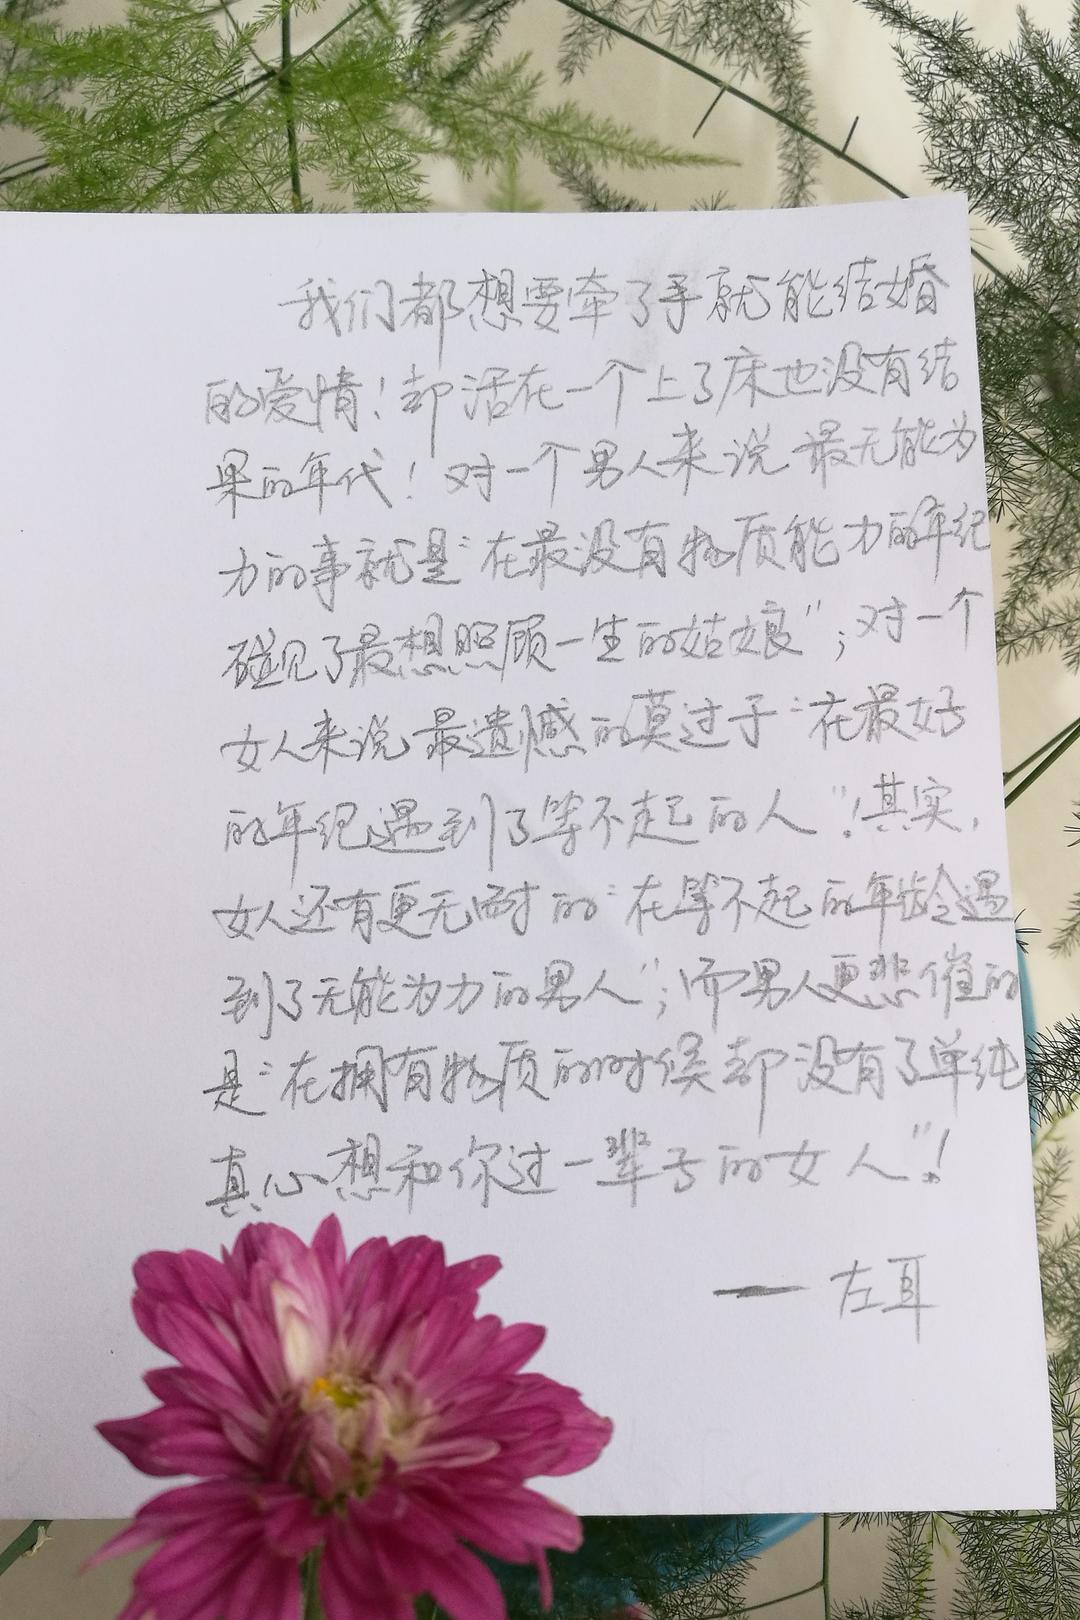 我们都想要牵了手就能结婚
的爱情！却活在一个上了床也没有结
果的年代！对一个男人来说最无能为
力的事就是“在最没有物质能力的年纪
碰见了最想照顾一生的姑娘”；对一个
女人来说最遗憾的莫过于“在最好
的年纪遇到了等不起的人”！其实，
女人还有更无耐的“在等不起的年龄遇
到了无能为力的男人”；而男人更悲催的
是“在拥有物质的时候却没有了单纯
真心想和你过一辈子的女人”！
— 左耳